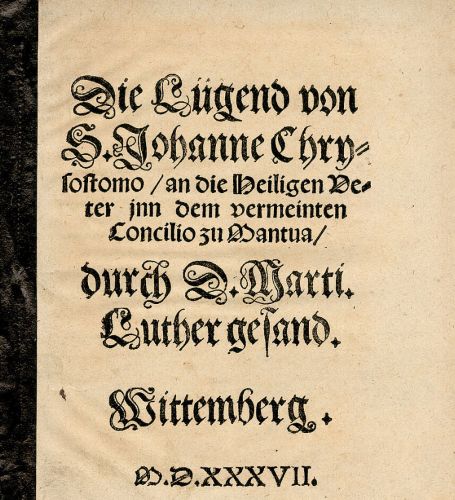 Die Lügend von
S. Johanne Chry-
sostomo / an die Heiligen Ve-
ter jnn dem vermeinten
Concilio zu Mantua /
durch D. Marti.
Luther gesand.
Wittemberg.
M.D.XXXVII.